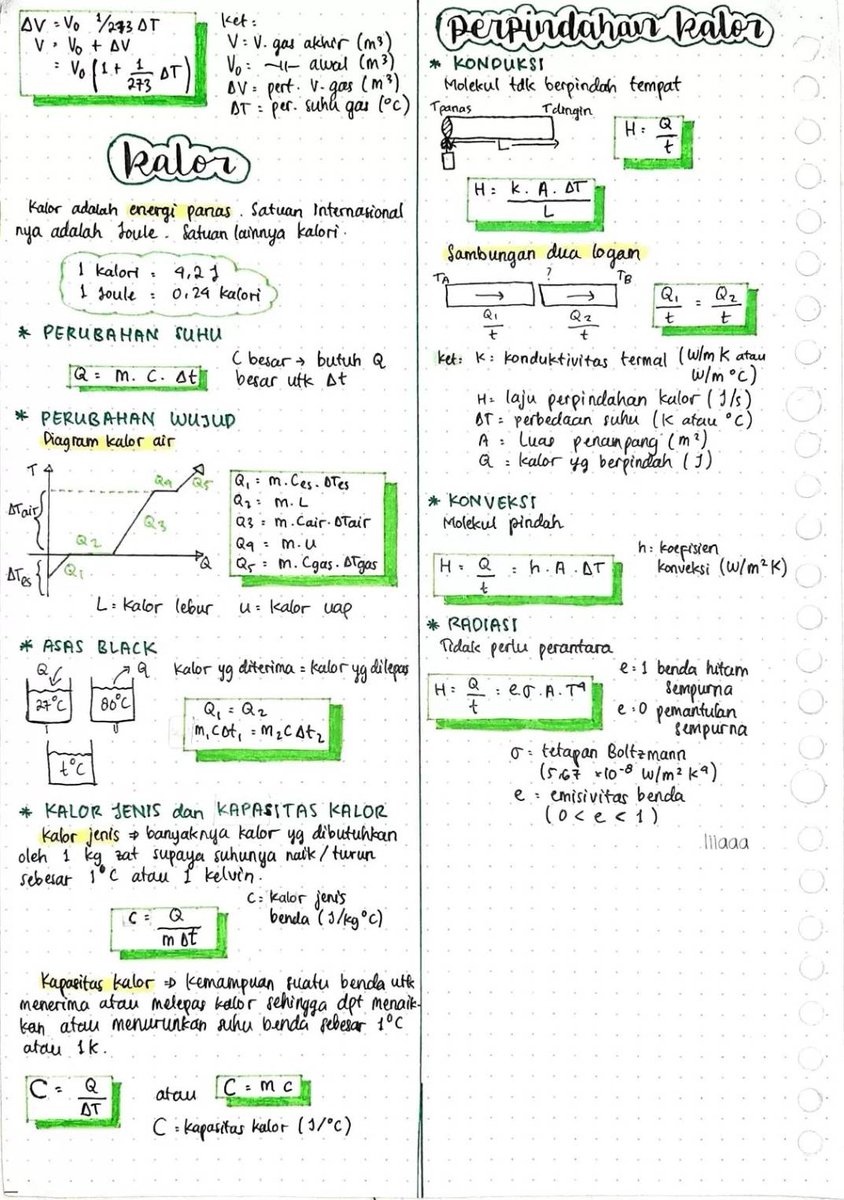 ΔV = V₀ 1/273 ΔT
V = V₀ + ΔV
= V₀ (1 + 1/273 ΔT)
ket:
V = V. gas akhir (m³)
V₀ = -11- awal (m³)
ΔV = pert. V. gas (m³)
ΔT = per. suhu gas (°C)
kalor
Kalor adalah energi panas. Satuan Internasional
nya adalah Joule. Satuan lainnya kalori.
1 kalori = 4,2 J
1 Joule = 0,24 kalori
* PERUBAHAN SUHU
Q = m. C. Δt
C besar → butuh Q
besar utk Δt
* PERUBAHAN WUJUD
Diagram kalor air
T
ΔTair
ΔTes
Q1
Q2
Q3
Q4
Q5
Q
Q₁ = m. Ces. ΔTes
Q₂ = m. L
Q3 = m. Cair. ΔTair
Q₄ = m. u
Q₅ = m. Cgas. ΔTgas
L = kalor lebur u = kalor uap
* ASAS BLACK
Q Q
27°C 80°C
t°C
Kalor yg diterima = kalor yg dilepas
Q₁ = Q₂
m₁CΔt₁ = m₂CΔt₂
* KALOR JENIS dan KAPASITAS KALOR
Kalor jenis ⇒ banyaknya kalor yg dibutuhkan
oleh 1 kg zat supaya suhunya naik/turun
sebesar 1°C atau 1 kelvin.
C = Q / m Δt
C = kalor jenis
benda (J/kg°C)
Kapasitas kalor ⇒ kemampuan suatu benda utk
menerima atau melepas kalor sehingga dpt menaik-
kan atau menurunkan suhu benda sebesar 1°C
atau 1k.
C = Q / ΔT atau C = m c
C = kapasitas kalor (J/°C)
perpindahan kalor
* KONDUKSI
Molekul tdk berpindah tempat
Tpanas Tdingin
L
H = Q / t
H = k. A. ΔT / L
Sambungan dua logam
TA ? TB
Q₁ / t Q₂ / t
Q₁ / t = Q₂ / t
ket: K = konduktivitas termal (W/m K atau
W/m °C)
H = laju perpindahan kalor (J/s)
ΔT = perbedaan suhu (K atau °C)
A = Luas penampang (m²)
Q = kalor yg berpindah (J)
* KONVEKSI
Molekul pindah
H = Q / t = h. A. ΔT
h = koefisien
konveksi (W/m²K)
* RADIASI
Tidak perlu perantara
H = Q / t = eσ. A. T⁴
e = 1 benda hitam
sempurna
e = 0 pemantulan
sempurna
σ = tetapan Boltzmann
(5,67 × 10⁻⁸ W/m² K⁴)
e = emisivitas benda
(0 < e < 1)
liiaaa